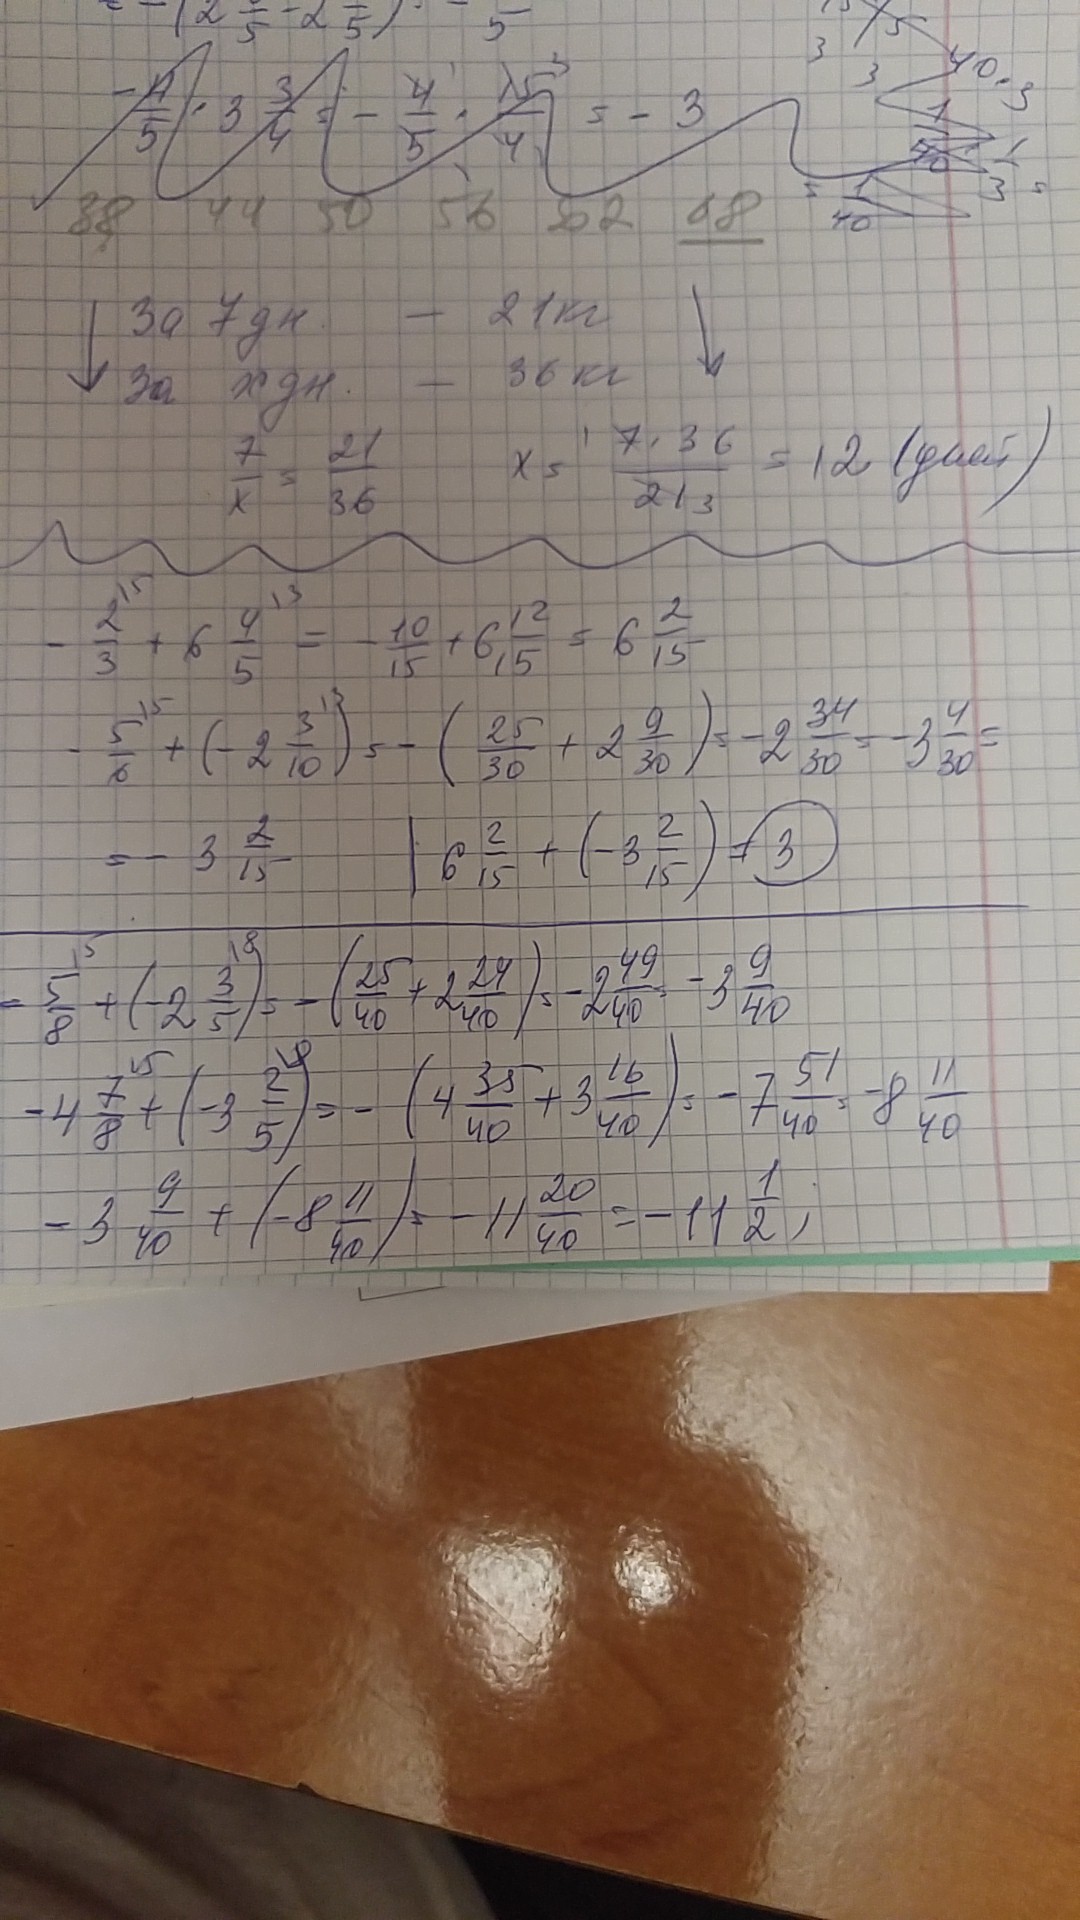 -4/5 · 3 3/4 = - 4/5 · 15/4 = - 3
38 44 50 56 62 68
За 7 дн. — 21 кг
За x дн. — 36 кг
7/x = 21/36 x = 7·36/21 = 12 (дней)
- 2/3 + 6 4/5 = - 10/15 + 6 12/15 = 6 2/15
- 5/6 + (-2 3/10) = - (25/30 + 2 9/30) = -2 34/30 = -3 4/30 =
= - 3 2/15 | 6 2/15 + (-3 2/15) = 3
- 5/8 + (-2 3/5) = - (25/40 + 2 24/40) = -2 49/40 = -3 9/40
-4 7/8 + (-3 2/5) = - (4 35/40 + 3 16/40) = -7 51/40 = -8 11/40
- 3 9/40 + (-8 11/40) = -11 20/40 = -11 1/2;